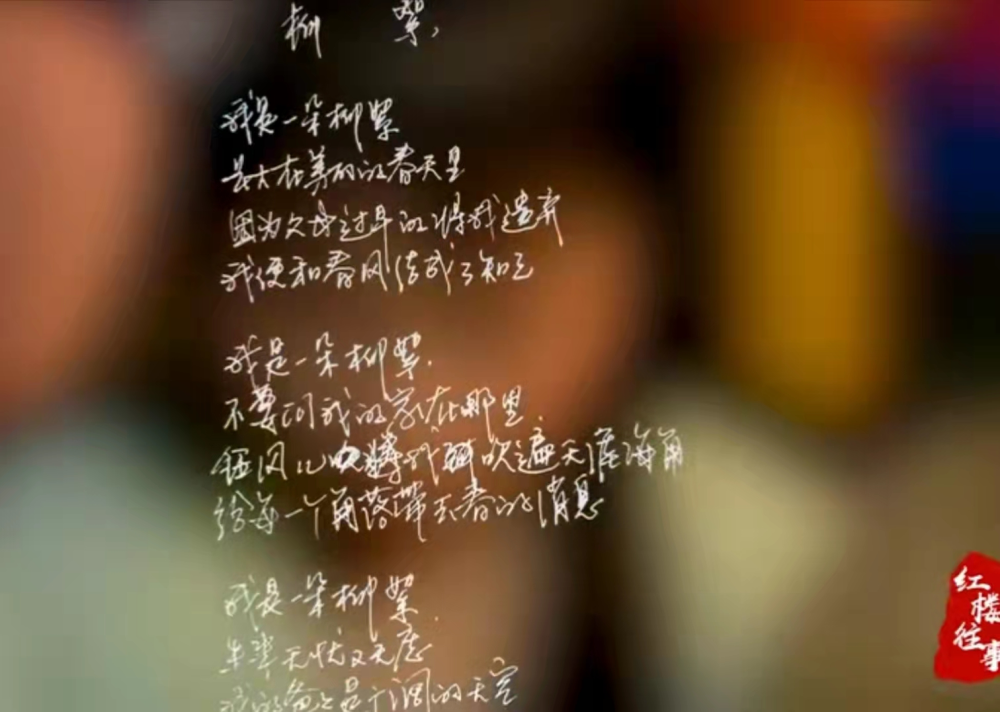 柳 絮
我是一朵柳絮
长大在美丽的春天里
因为父母过早的将我遗弃
我便和春风结成了知己
我是一朵柳絮
不要问我的家在哪里
任风儿将我吹遍天涯海角
给每一个角落带去春的消息
我是一朵柳絮
生来无忧又无虑
我的爸爸是广阔的天空
红楼往事